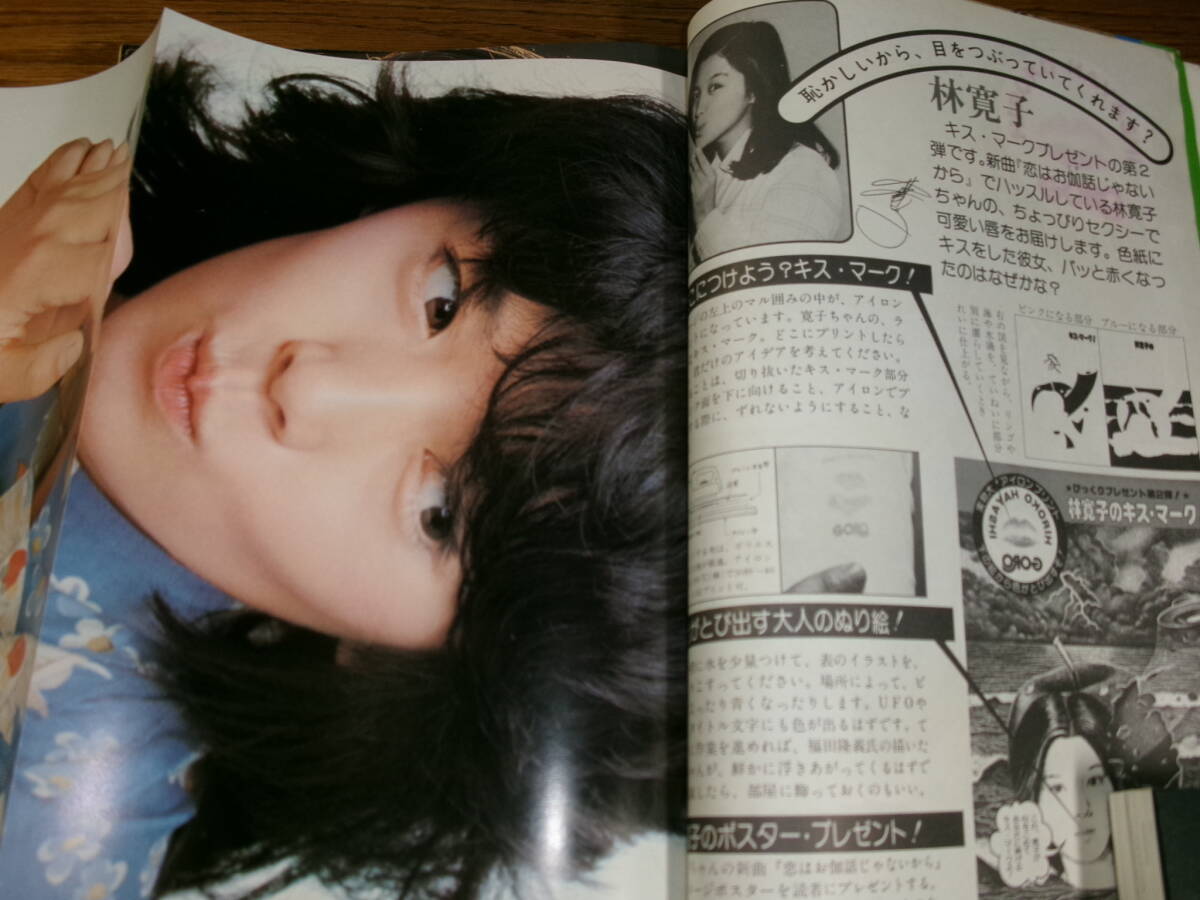 恥かしいから、目をつぶっていてくれます?
林寛子
キス・マークプレゼントの第2
弾です。新曲『恋はお伽話じゃない
から』でハッスルしている林寛子
ちゃんの、ちょっぴりセクシーで
可愛い唇をお届けします。色紙に
キスをした彼女、パッと赤くなっ
たのはなぜかな?
こにつけよう?キス・マーク!
の左上のマル囲みの中が、アイロン
になっています。寛子ちゃんの、ラ
キス・マーク。どこにプリントしたら
君だけのアイデアを考えてください。
ことは、切り抜いたキス・マーク部分
面を下に向けること、アイロンでプ
る際に、ずれないようにすること、な
ピンクになる部分
ブルーになる部分
キス・マーク!
右の図を見ながら、リンゴや
GORO
びっくりプレゼント第2弾!
林寛子のキス・マーク
アイロンプリント
HIROKO HAYASHI
GORO
がとび出す大人のぬり絵!
に水を少量つけて、表のイラストを、
こすってください。場所によって、ピ
ったり青くなったりします。UFOや
タイトル文字にも色が出るはずです。て
作業を進めれば、福田隆義氏の描いた
ゃんが、鮮かに浮きあがってくるはずで
したら、部屋に飾っておくのもいい。
子のポスター・プレゼント!
ちゃんの新曲『恋はお伽話じゃないから』
ージポスターを読者にプレゼントする。